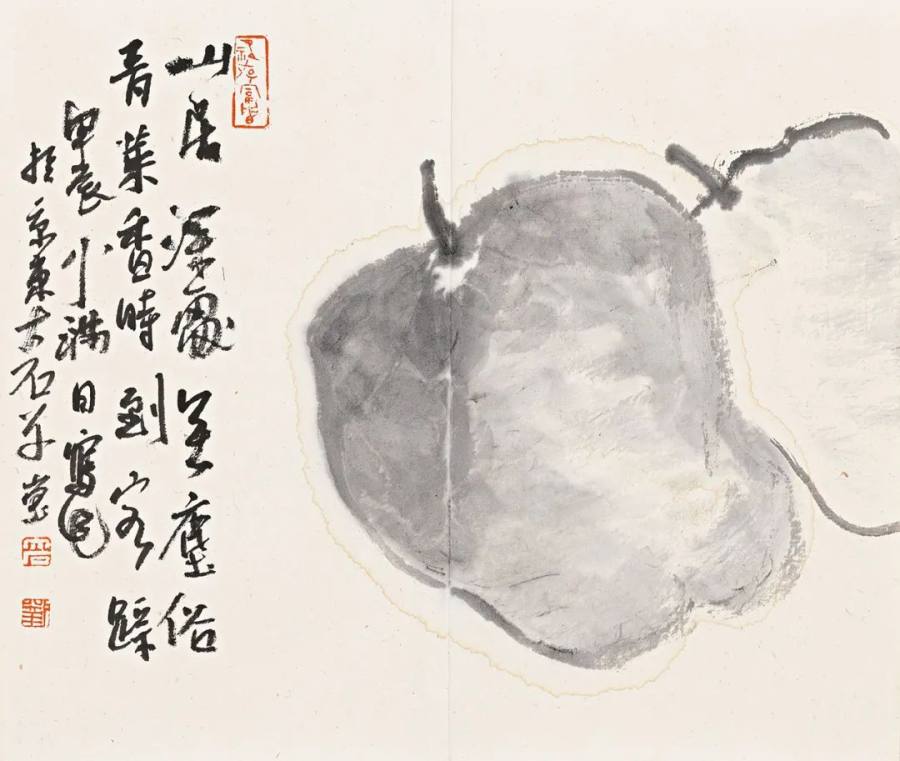 山居深處無塵俗
青葉香時到客踪
甲辰小滿日寫
於京東大石